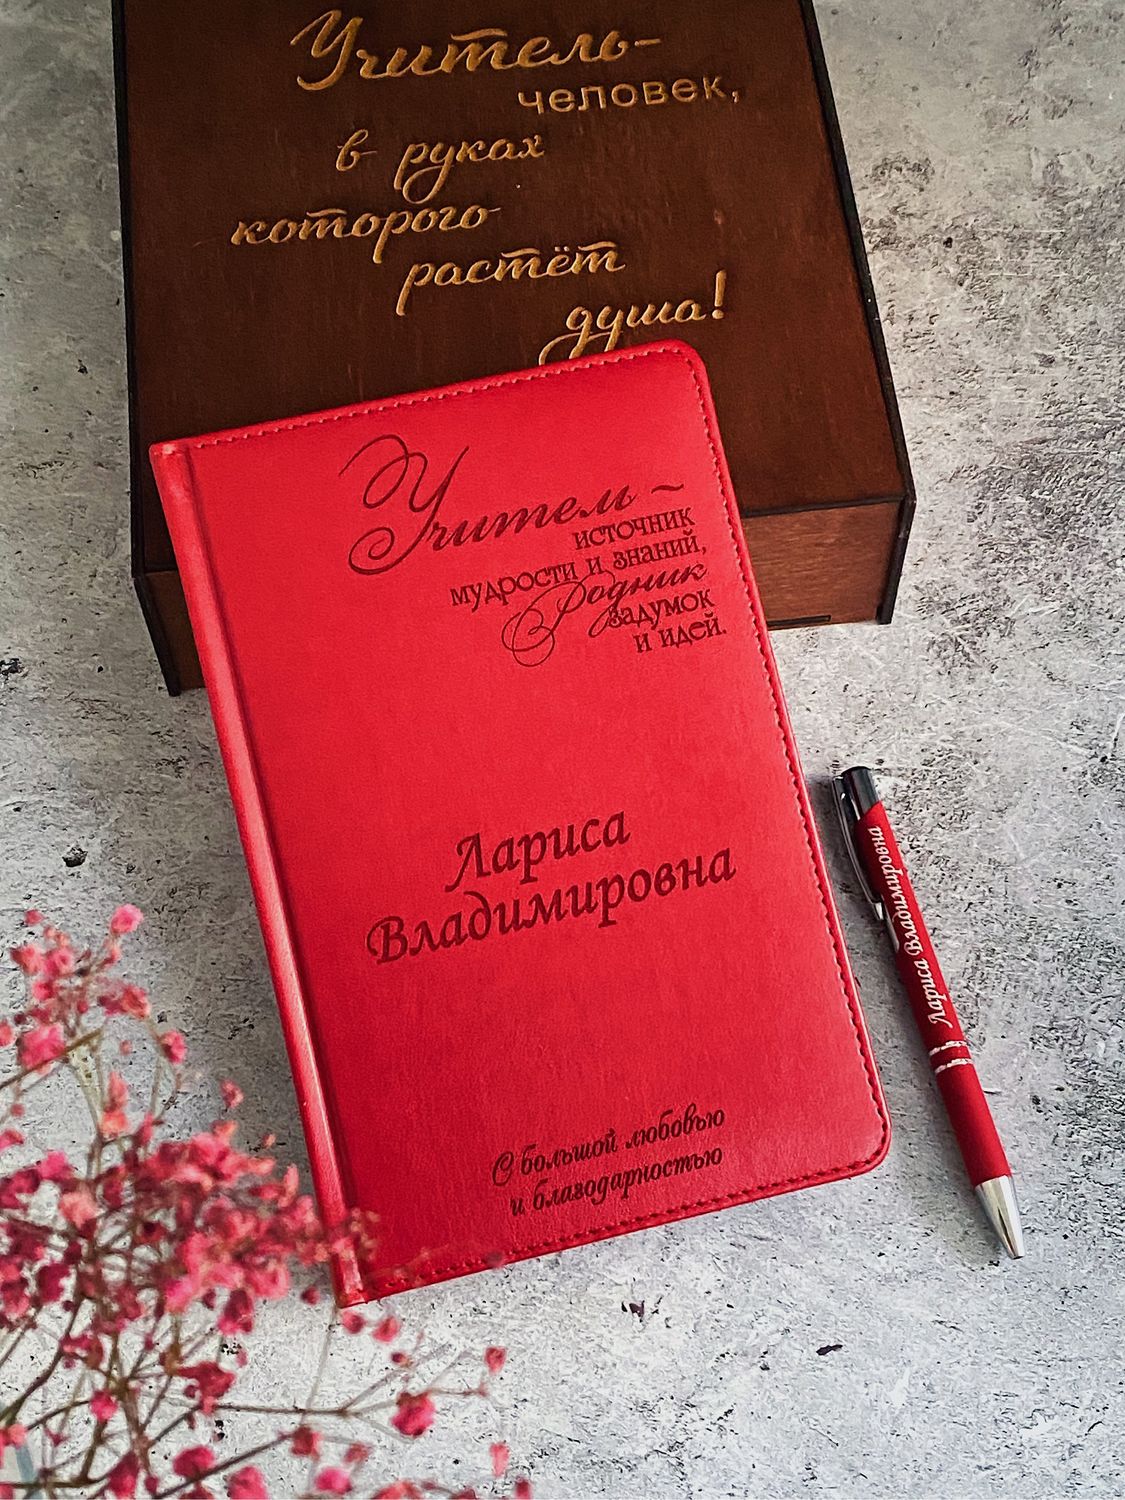 Учитель-
человек,
в руках
которого
растёт
душа!
Учитель ~
источник
мудрости и знаний,
Родник
задумок
и идей.
Лариса
Владимировна
С большой любовью
и благодарностью
Лариса Владимировна